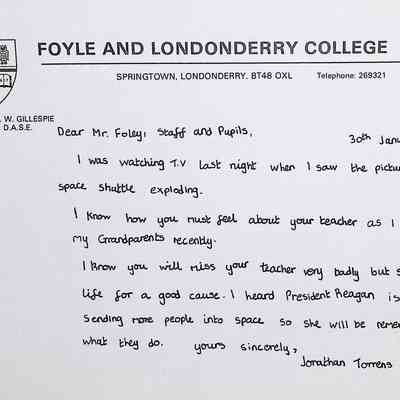 FOYLE AND LONDONDERRY COLLEGE
SPRINGTOWN, LONDONDERRY. BT48 OXL Telephone: 269321
W. GILLESPIE
D.A.S.E.
Dear Mr. Foley, Staff and Pupils,
30th Janu
I was watching T.V last night when I saw the pictu
space shuttle exploding.
I know how you must feel about your teacher as I
my Grandparents recently.
I know you will miss your teacher very badly but s
life for a good cause. I heard President Reagan is
sending more people into space so she will be reme
what they do. yours sincerely,
Jonathan Torrens